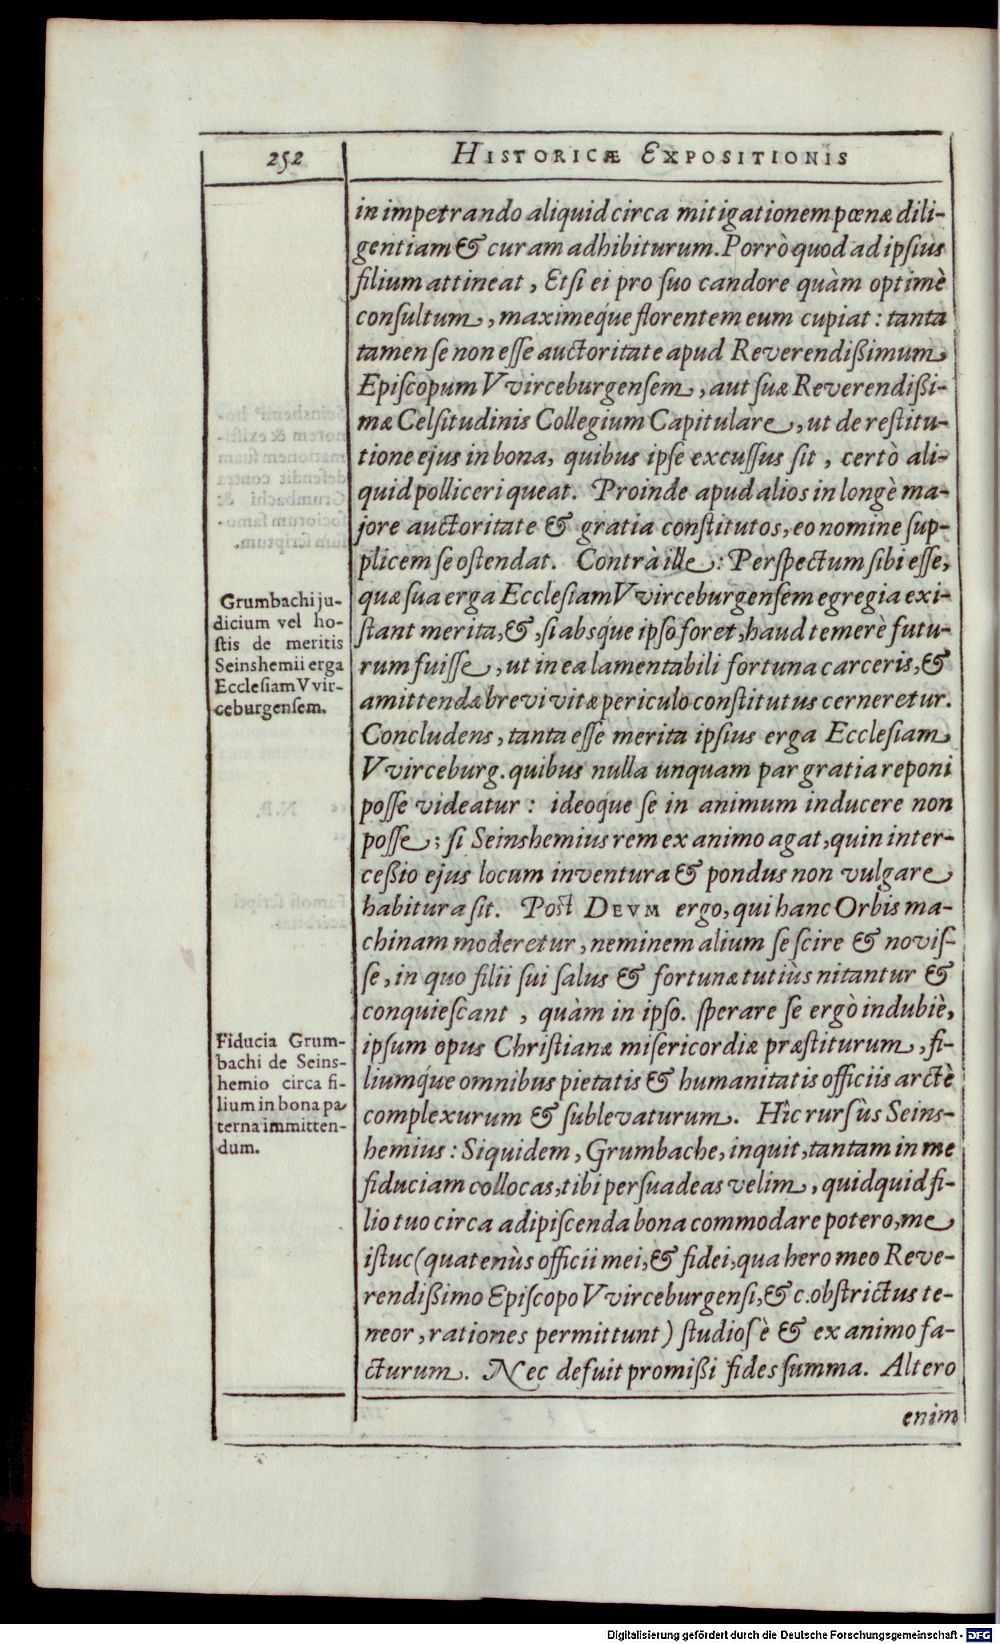 252
HISTORICÆ EXPOSITIONIS
in impetrando aliquid circa mitigationem pœnæ dili-
gentiam & curam adhibiturum. Porrò quod ad ipsius
filium attineat, Etsi ei pro suo candore quàm optimè
consultum, maximeq́ue florentem eum cupiat: tanta
tamen se non esse auctoritate apud Reverendißimum
Episcopum VVirceburgensem, aut suæ Reverendißi-
mæ Celsitudinis Collegium Capitulare, ut de restitu-
tione ejus in bona, quibus ipse excussus sit, certò ali-
quid polliceri queat. Proinde apud alios in longè ma-
jore auctoritate & gratia constitutos, eo nomine sup-
plicem se ostendat. Contrà ille: Perspectum sibi esse,
quæ sua erga Ecclesiam VVirceburgensem egregia exi-
stant merita, &, si absq́ue ipso foret, haud temerè futu-
rum fuisse, ut in ea lamentabili fortuna carceris, &
amittendæ brevi vitæ periculo constitutus cerneretur.
Concludens, tanta esse merita ipsius erga Ecclesiam
VVirceburg. quibus nulla unquam par gratia reponi
posse videatur: ideoq́ue se in animum inducere non
posse; si Seinshemius rem ex animo agat, quin inter-
ceßio ejus locum inventura & pondus non vulgare
habitura sit. Post DEVM ergo, qui hanc Orbis ma-
chinam moderetur, neminem alium se scire & novis-
se, in quo filii sui salus & fortunæ tutiùs nitantur &
conquiescant, quàm in ipso. sperare se ergò indubiè,
ipsum opus Christianæ misericordiæ præstiturum, fi-
liumq́ue omnibus pietatis & humanitatis officiis arctè
complexurum & sublevaturum. Hîc rursùs Seins-
hemius: Siquidem, Grumbache, inquit, tantam in me
fiduciam collocas, tibi persuadeas velim, quidquid fi-
lio tuo circa adipiscenda bona commodare potero, me
istuc (quatenùs officii mei, & fidei, qua hero meo Reve-
rendißimo Episcopo VVirceburgensi, &c. obstrictus te-
neor, rationes permittunt) studiosè & ex animo fa-
cturum. Nec defuit promißi fides summa. Altero
enim
Grumbachi ju-
dicium vel ho-
stis de meritis
Seinshemii erga
Ecclesiam VVir-
ceburgensem.
Fiducia Grum-
bachi de Seins-
hemio circa fi-
lium in bona pa
terna immitten-
dum.
Digitalisierung gefördert durch die Deutsche Forschungsgemeinschaft - DFG